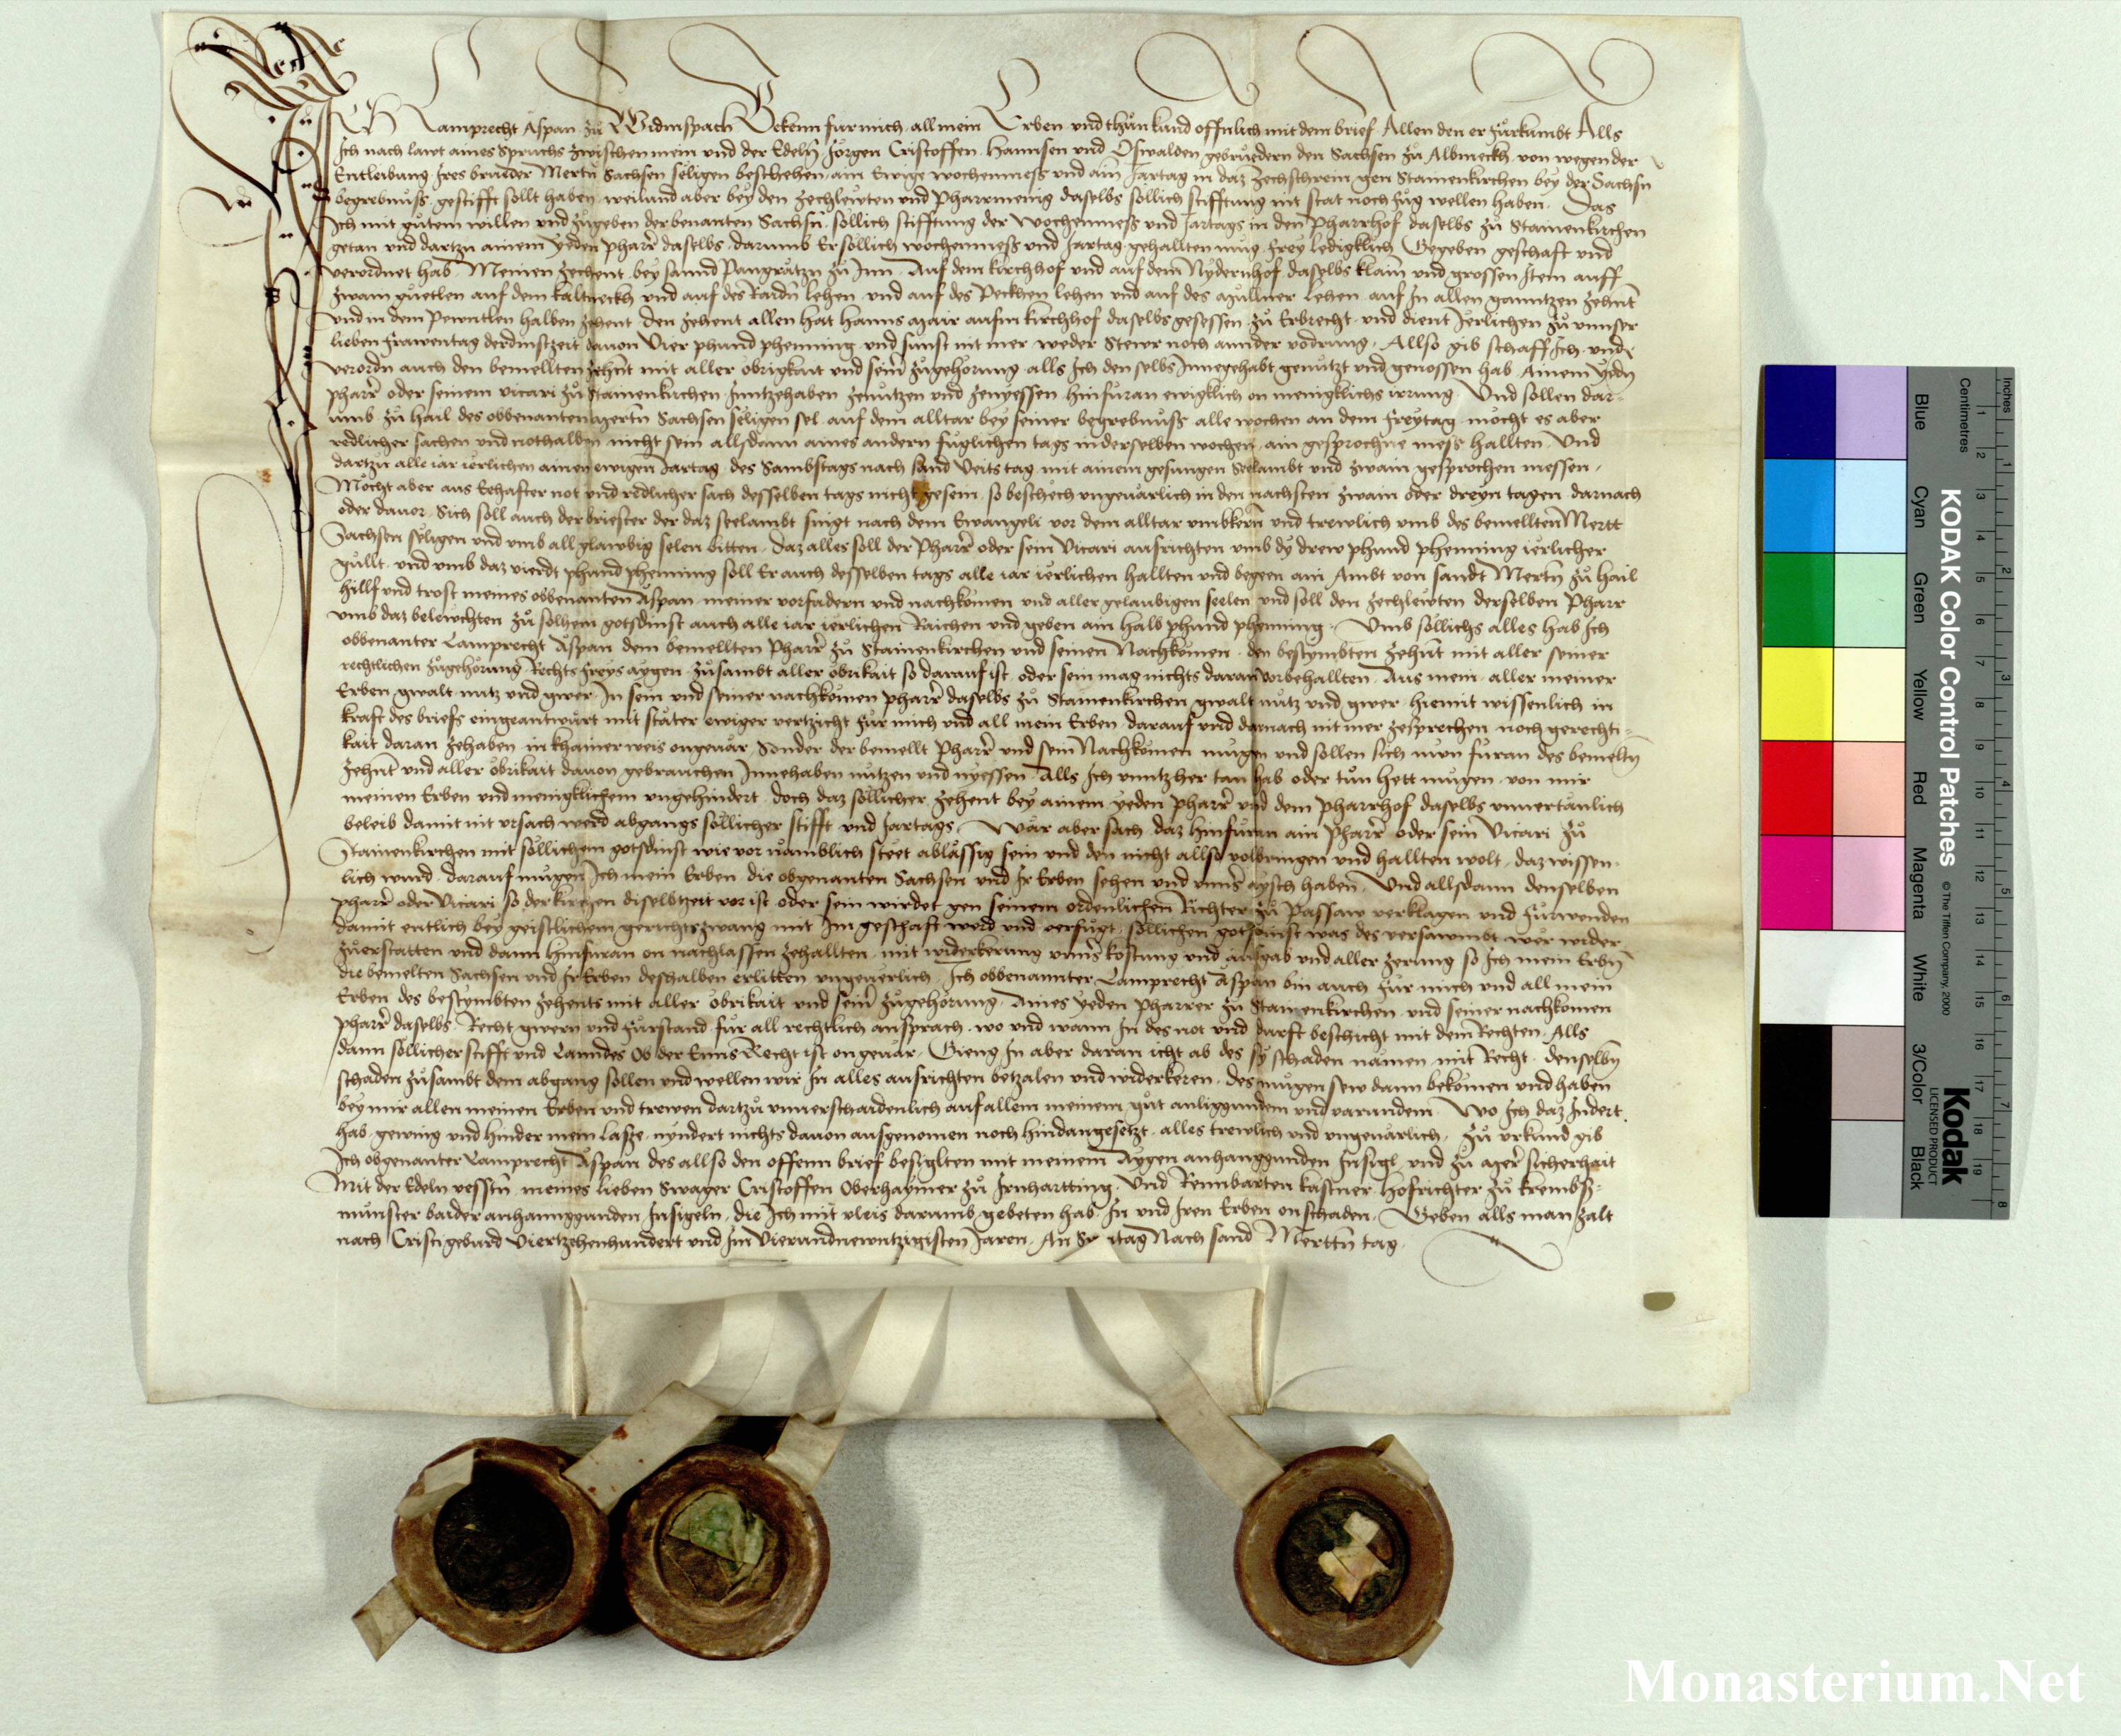 Ich Lamprecht Aspan zů Widmspach Bekenn fur mich all mein Erben und thůn kund offnlich mit dem brief Allen den er fůrkumbt Alls
Ich nach lawt aines Spruchs zwischen mein und der Edeln Jorgen Cristoffen Hannsen und Oswalden gebruedern den Sachsen zů Albmeckh von wegen der
Entleibung Jres brueder Mertn Sachsen seligen beschehen ain Ewige wochenmess und ain Jartag in daz zechschrein gen Stainenkirchen bey der Sachsn
begrebnuss gestifft sollt haben weiland aber bey den zechlewten und Pharrmenig daselbs sollich stifftung nit stat noch fůg wellen haben Das
Ich mit gůtem willen und zůgeben der benanten Sachsn sollich stifftung der wochenmess und Jartags in den Pharrhof daselbs zů Stainenkirchen
getan und dartzu ainem yeden pharr daselbs darumb Er sollich wochenmess und Jartag gehallten mug frey ledigklich Gegeben geschaft und
verordnet hab Meinen zechent bey sannd Pangrätzn zů Inn Auf dem kirchhof und auf dem Nydernhof daselbs klain und grossen Item auff
zwain guetlen auf dem kaltneckh und auf des Raidn lehen und auf des Peckhen lehen und auf des Müllner Lehen auf In allen ganntzen zehnt
und in dem Pewntlen halben zehent den zehent allen hat Hanns Mair aufm kirchhof daselbs gesessen zů Erbrecht und dient Jerlichen zů unnser
lieben frawentag der dinstzeit dauon Vier phund phenning und sunst nit mer weder Stewr noch annder vodrung Allso gib schaff Ich und
verordn auch den bemellten zehnt mit aller obrigkait und seiner zůgehorung alls Ich den selbs Innegehabt genutzt und genossen hab Ainem ydn
pharr oder seinem vicari zů Stainenkirchen Inntzehaben zenutzen und zenyessen hinfuran ewigklich on menigklichs irrung Und sollen dar-
umb zů hail des obbenanten Mertn Sachsen seligen sel auf dem alltar bey seiner begrebnuss alle wochen an dem freytag mocht es aber
redlicher sachen und nothalben nicht sein allsdann aines andern fuglichen tags in derselben wochen ain gesprochne mess hallten Und
dartzu alle iar ierlichen ainen ewigen Jartag des Sambstags nach sand Veits tag mit ainem gesungen Seelambt und zwain gesprochen messen
Mocht aber aus Eehafter not und redlicher sach desselben tags nicht gesein so beschech ungeuarlich in den nachsten zwain oder dreyn tagen darnach
oder dauor Sich soll auch der briester der daz seelambt singt nach dem Ewangeli vor dem alltar umbkern und trewlich umb des bemellten Mertt
Sachsen seligen und umb all glawbig selen bitten daz alles soll der Pharr oder sein Vicari ausrichten umb dy drew phund phenning ierlicher
gullt und umb daz vierdt phund phenning soll Er auch desselben tags alle iar ierlichen hallten und begeen ain Ambt von sandt Mertn zů hail
hillf und trost meines obbenanten Aspan meiner vorfadern und nachkomen und aller gelaubigen seelen und soll den zechlewten derselben Pharr
umb daz belewchten zů solhem gotsdinst auch alle iar ierlichen Raichen und geben ain halb phund phenning Umb sollichs alles hab Ich
obbenanter Lamprecht Aspan dem bemellten Pharr zů Stainenkirchen und seinen Nachkomen den bestymbten zehnt mit aller seiner
rechtlichen zůgehorung Rechts freys aygen zůsambt aller obrikait so darauf ist oder sein mag nichts daran vorbehallten Aus mein aller meiner
Erben gwalt nutz und gwer In sein und seiner nachkomen pharr daselbs zů Stainenkirchen gwalt nutz und gwer hiemit wissenlich in
kraft des briefs eingeantwurt mit stater ewiger vertzicht fur mich und all mein Erben darauf und darnach nit mer zesprechen noch gerechti-
kait daran zehaben in khainer weis ongeuar Sonder der bemellt Pharr und sein Nachkomen mugen und sollen sich nun furan des bemeltn
zehnt und aller obrikait dauon gebrauchen Innehaben nutzen und nyessen Alls Ich unntzher tan hab oder tun hett mugen von mir
meinen Erben und menigklichem ungehindert doch daz sollicher zehent bey ainem yeden pharr und dem pharrhof daselbs unuertanlich
beleib damit nit ursach werd abgangs sollicher stifft und Jartags Wär aber sach daz hinfuran ain Pharr oder sein Vicari zů
Stainenkirchen mit sollichem gotsdinst wie vor namblich steet ablässig sein und den nicht allso volbringen und hallten wolt daz wissen-
lich wurd darauf mugen Ich mein Erben die obgenanten Sachsen und Ir Erben sehen und haben Und allsdann denselben
pharr oder Vicari so der kirchen diselbtzeit vor ist oder sein wirdet gen seinem ordenlichen Richter zů Passaw verklagen und furwenden
damit entlich bey geistlichem gerichtszwang mit Im geschaft werd und verfugt sollichen gotsdinst was des versawmbt wer wider
zuerstatten und dann hinfuran on nachlassen zehallten mit widerkerung unns kostung und ausgab und aller zerung so Ich mein Erbn
die bemelten Sachsen und Ir Erben deshalben erlitten ungeuerlich Ich obbenannter Lamprecht Aspan bin auch fur mich und all mein
Erben des bestymbten zehents mit aller obrikait und seiner zugehorung Aines yeden Pharrer zů Stainenkirchen und seiner nachkomen
pharr daselbs Recht gwern und fůrstand fur all rechtlich ansprach wo und wann In des not und darft beschicht mit dem Rechten Alls
dann sollicher stifft und Lanndes Ob der Enns Recht ist ongeuar Gieng In aber daran icht ab des sy schaden namen mit Recht denselbn
schaden zůsambt dem abgang sollen und wellen wir In alles ausrichten betzalen und widerkeren des mugen sew dann bekomen und haben
bey mir allen meinen Erben und trewen dartzů unuerschaidenlich auf allem meinem gůt anliggundem und varundem Wo Ich daz Indert
hab gewing und hinder mein Lasze nyndert nichts dauon ausgenomen noch hindangesetzt alles trewlich und ungeuarlich Zů urkund gib
Ich obgenanter Lamprecht Aspan des allso den offenn brief besiglten mit meinem Aygen anhanggunden Insigl und zů merer sicherhait
Mit der Edeln vesstn meines lieben Swager Cristoffen Oberhaymer zů Irnhartting Und Rennbarten kastner Hofrichter zů krembs-
munster baider anhannggunden Insigeln die Ich mit vleis darumb gebeten hab In und Iren Erben on schaden Geben alls man zalt
nach Cristi geburd Viertzehenhundert und Im Vierundnewntzigisten Jaren An nach sand Merttn tag
KODAK Color Control Patches © The Tiffen Company, 2000
Kodak
LICENSED PRODUCT
Inches
Centimetres
Blue
Cyan
Green
Yellow
Red
Magenta
White
3/Color
Black
Monasterium.Net